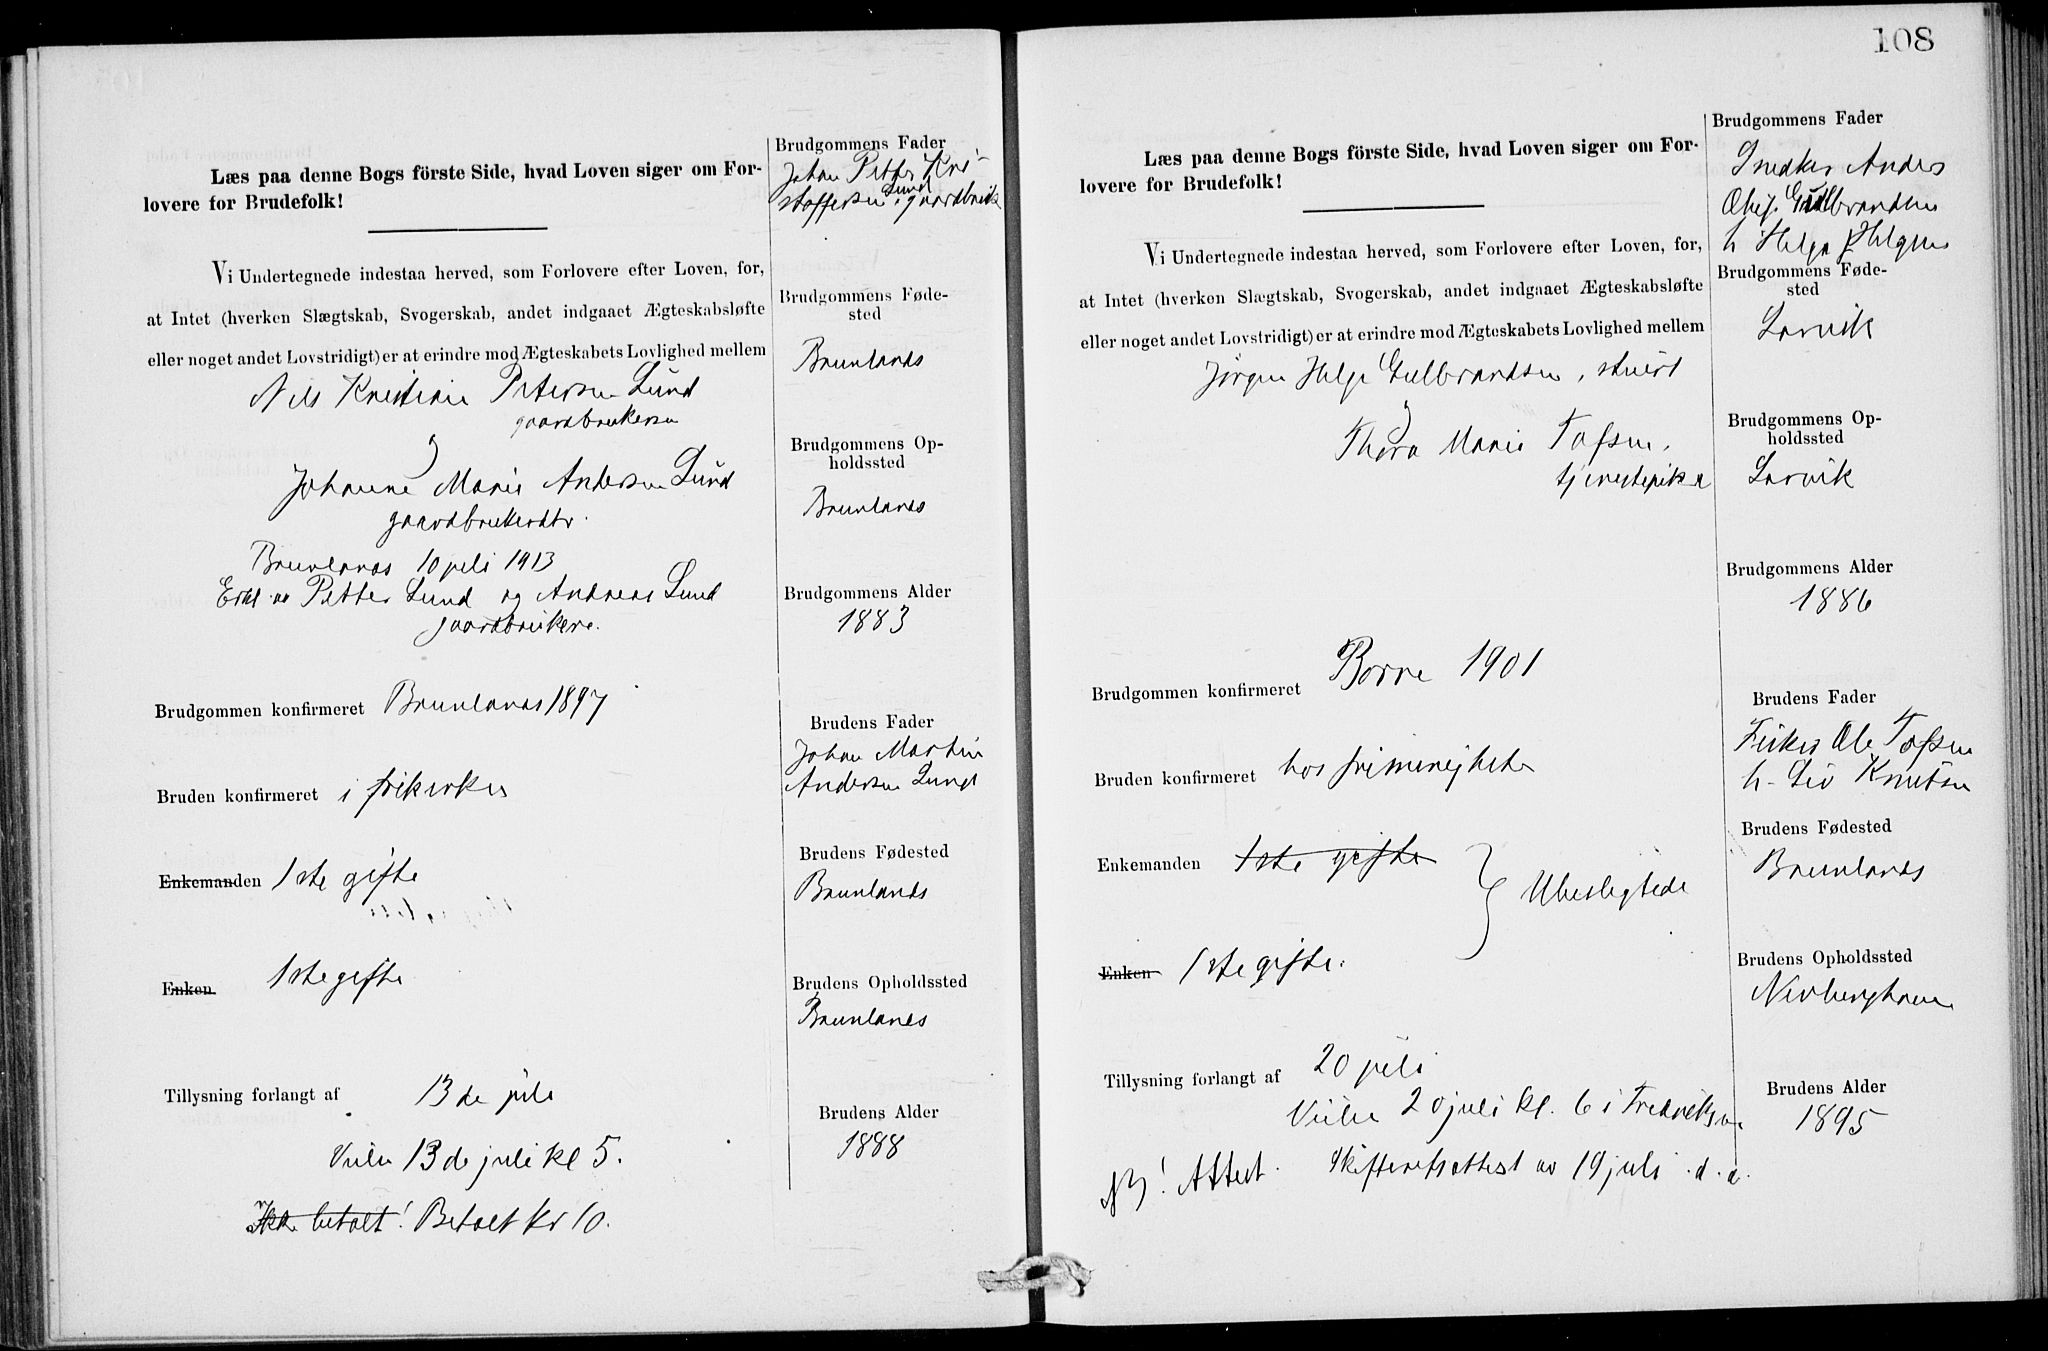 Læs paa denne Bogs förste Side, hvad Loven siger om For-
lovere for Brudefolk!
Vi Undertegnede indestaa herved, som Forlovere efter Loven, for,
at Intet (hverken Slægtskab, Svogerskab, andet indgaaet Ægteskabsløfte
eller noget andet Lovstridigt) er at erindre mod Ægteskabets Lovlighed mellem
Nils Kristian Petersen Lund
gaardbrukersøn
Johanne Marie Andersen Lund
gaardbrukerdtr.
Brunlanes 10 juli 1913
Erkl. av Petter Lund og Andreas Lund
gaardbrukere.
Brudgommen konfirmeret Brunlanes 1897
Bruden konfirmeret i frikirken
Enkemanden 1ste gifte
Enken 1ste gifte
Tillysning forlangt af 13de juli
Vielse 13de juli kl 5.
Ikke betalt! Betalt kr 10.
Brudgommens Fader
Johan Petter Kri-
stoffersen Lund, gaardbruk
Brudgommens Føde-
sted
Brunlanes
Brudgommens Op-
holdssted
Brunlanes
Brudgommens Alder
1883
Brudens Fader
Johan Martin
Andersen Lund
Brudens Fødested
Brunlanes
Brudens Opholdssted
Brunlanes
Brudens Alder
1888
108
Læs paa denne Bogs förste Side, hvad Loven siger om For-
lovere for Brudefolk!
Vi Undertegnede indestaa herved, som Forlovere efter Loven, for,
at Intet (hverken Slægtskab, Svogerskab, andet indgaaet Ægteskabsløfte
eller noget andet Lovstridigt) er at erindre mod Ægteskabets Lovlighed mellem
Jørgen Helge Gulbrandsen, stuert
Thora Marie Tofsen,
tjenestepike
Brudgommen konfirmeret Borre 1901
Bruden konfirmeret hos frimenigheten
Enkemanden 1ste gifte
Ubeslegtede
Enken 1ste gifte.
Tillysning forlangt af 20 juli
Vielse 20 juli kl. 6 i Fredriksvern
NB! Attest. Skifteretsattest av 19 juli d. a.
Brudgommens Fader
Snedker Anders
Gulbrandsen
h Helga Helgesen
Brudgommens Føde-
sted
Larvik
Brudgommens Op-
holdssted
Larvik
Brudgommens Alder
1886
Brudens Fader
Fisker Ole Tofsen
h. Liv Knutsen
Brudens Fødested
Brunlanes
Brudens Opholdssted
Nevlunghavn
Brudens Alder
1895